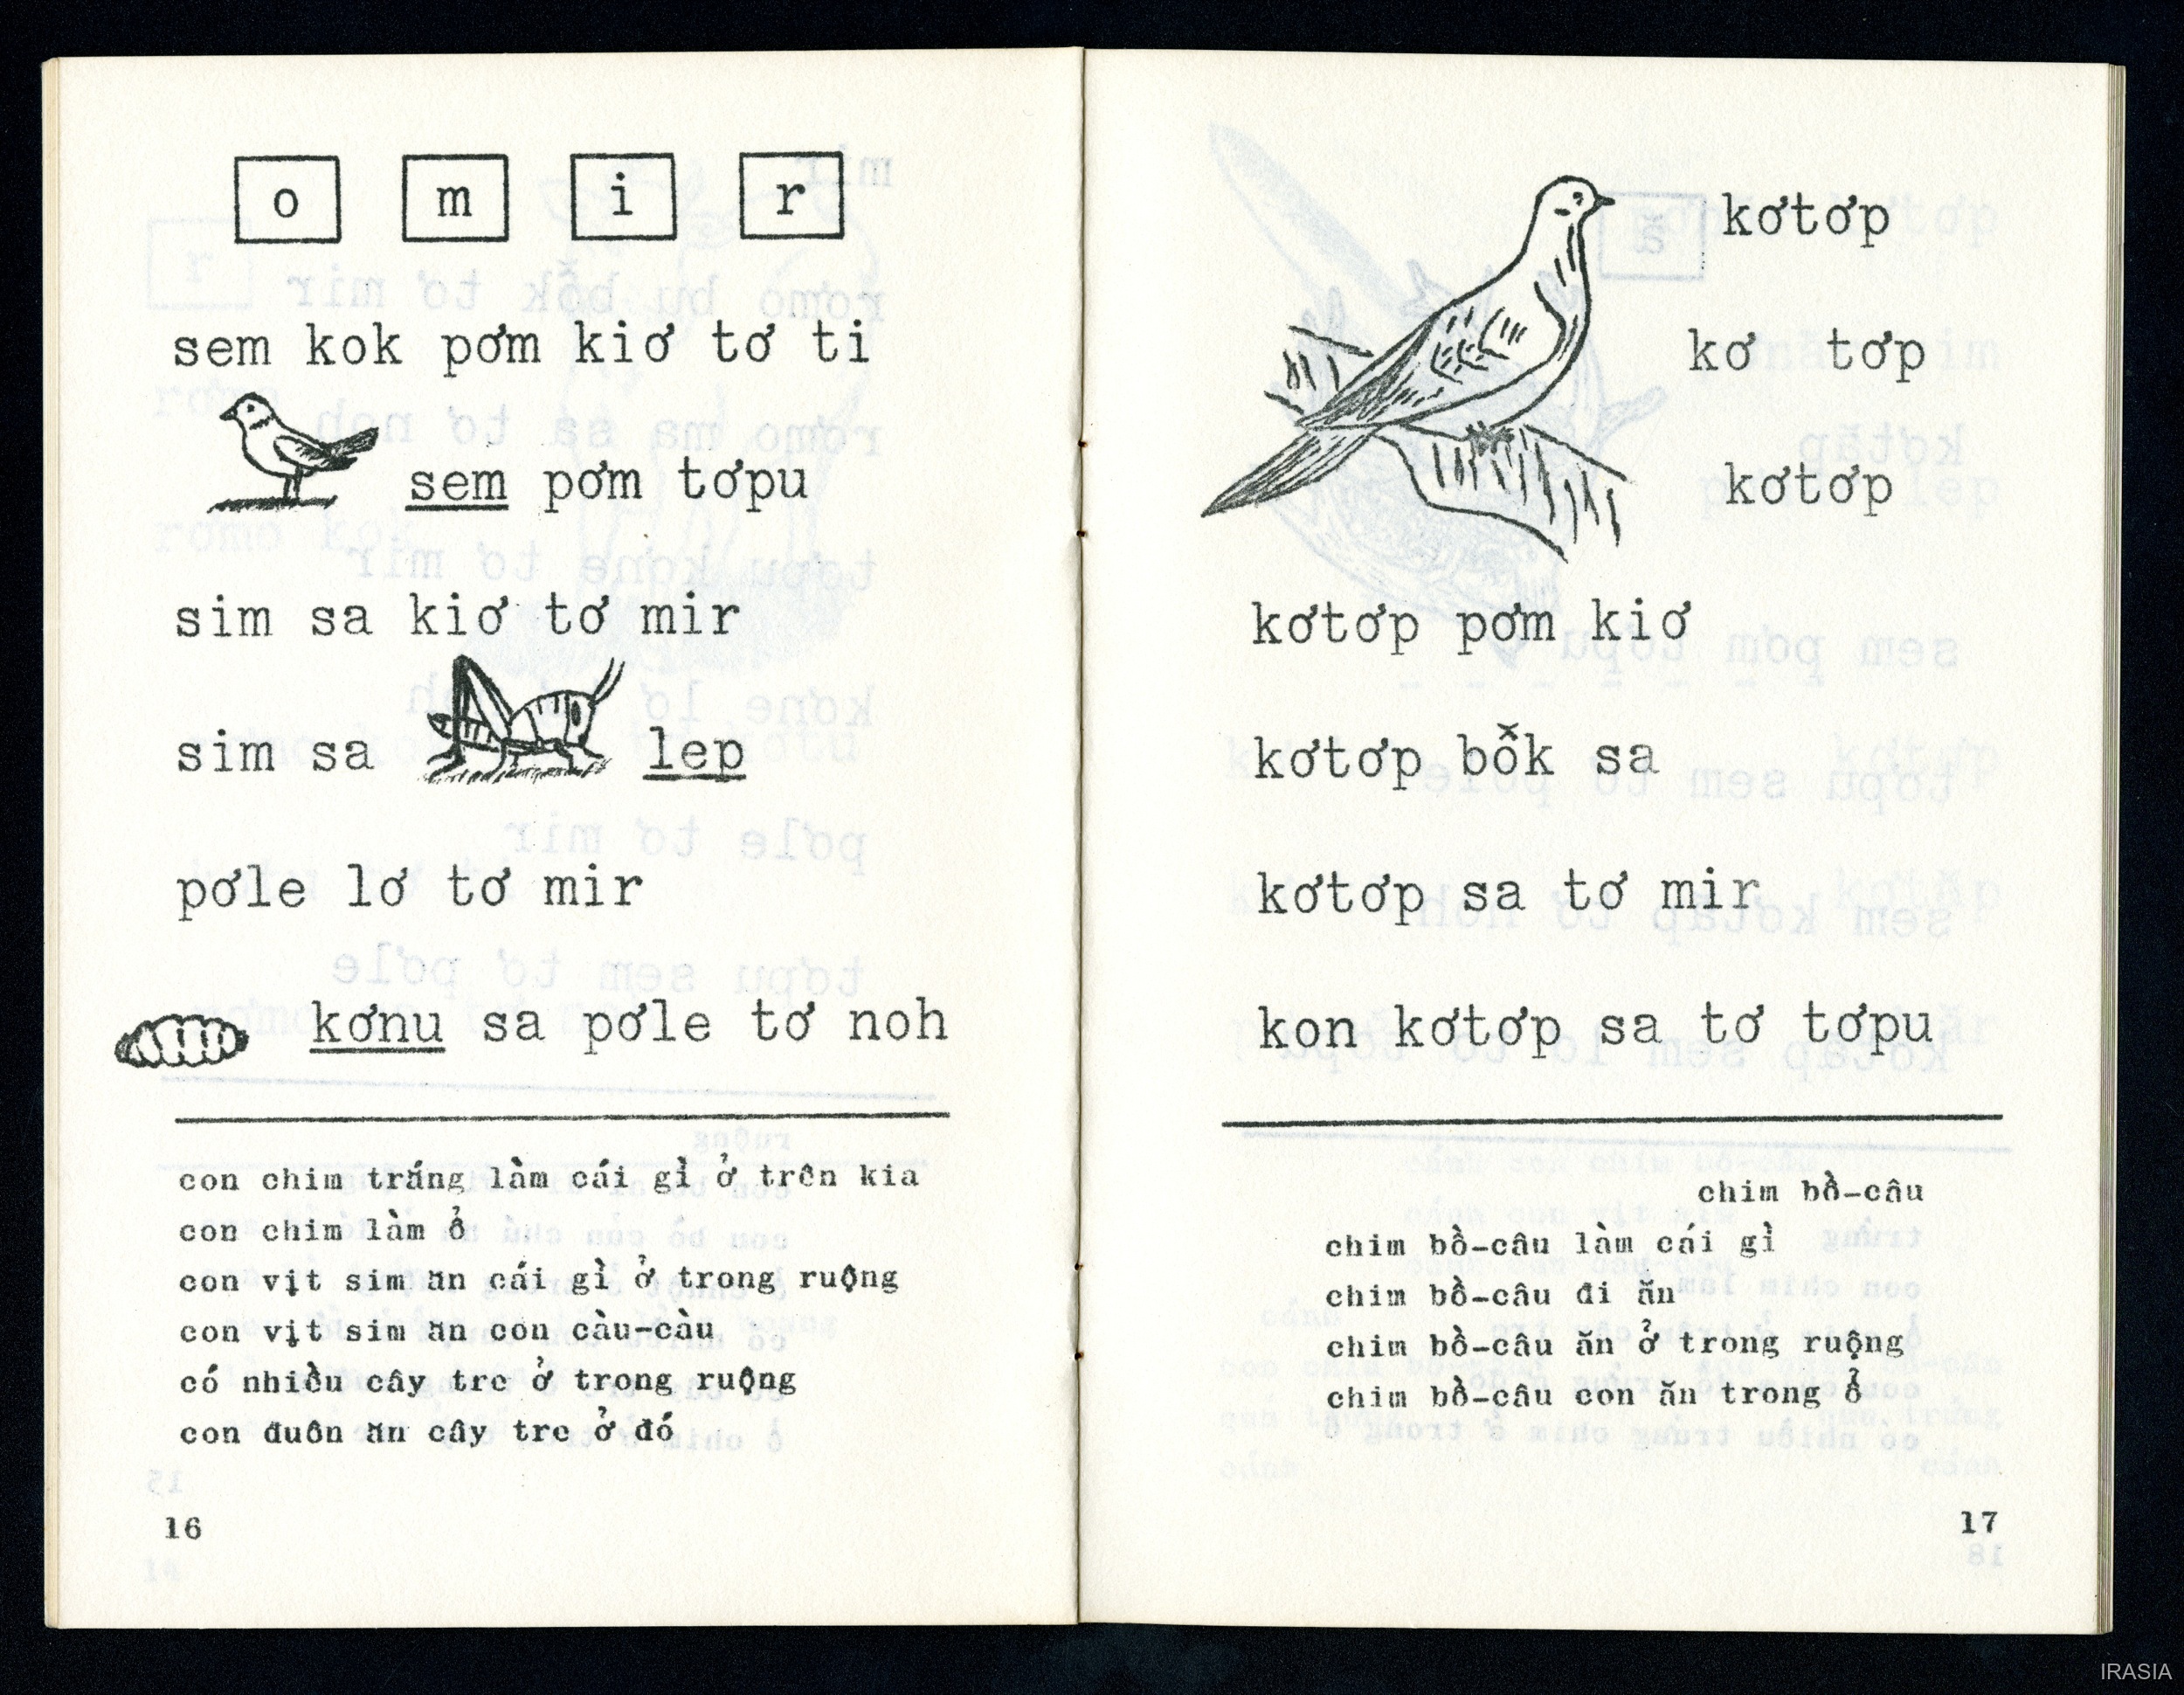 o m i r
sem kok pơm kiơ tơ ti
sem pơm tơpu
sim sa kiơ tơ mir
sim sa lep
pơle lơ tơ mir
kơnu sa pơle tơ noh
con chim trắng làm cái gì ở trên kia
con chim làm ổ
con vịt sim ăn cái gì ở trong ruộng
con vịt sim ăn con càu-càu
có nhiều cây tre ở trong ruộng
con đuôn ăn cây tre ở đó
16
kơtơp
kơ tơp
kơtơp
kơtơp pơm kiơ
kơtơp bô̆k sa
kơtơp sa tơ mir
kon kơtơp sa tơ tơpu
chim bồ-câu
chim bồ-câu làm cái gì
chim bồ-câu đi ăn
chim bồ-câu ăn ở trong ruộng
chim bồ-câu con ăn trong ổ
17
IRASIA